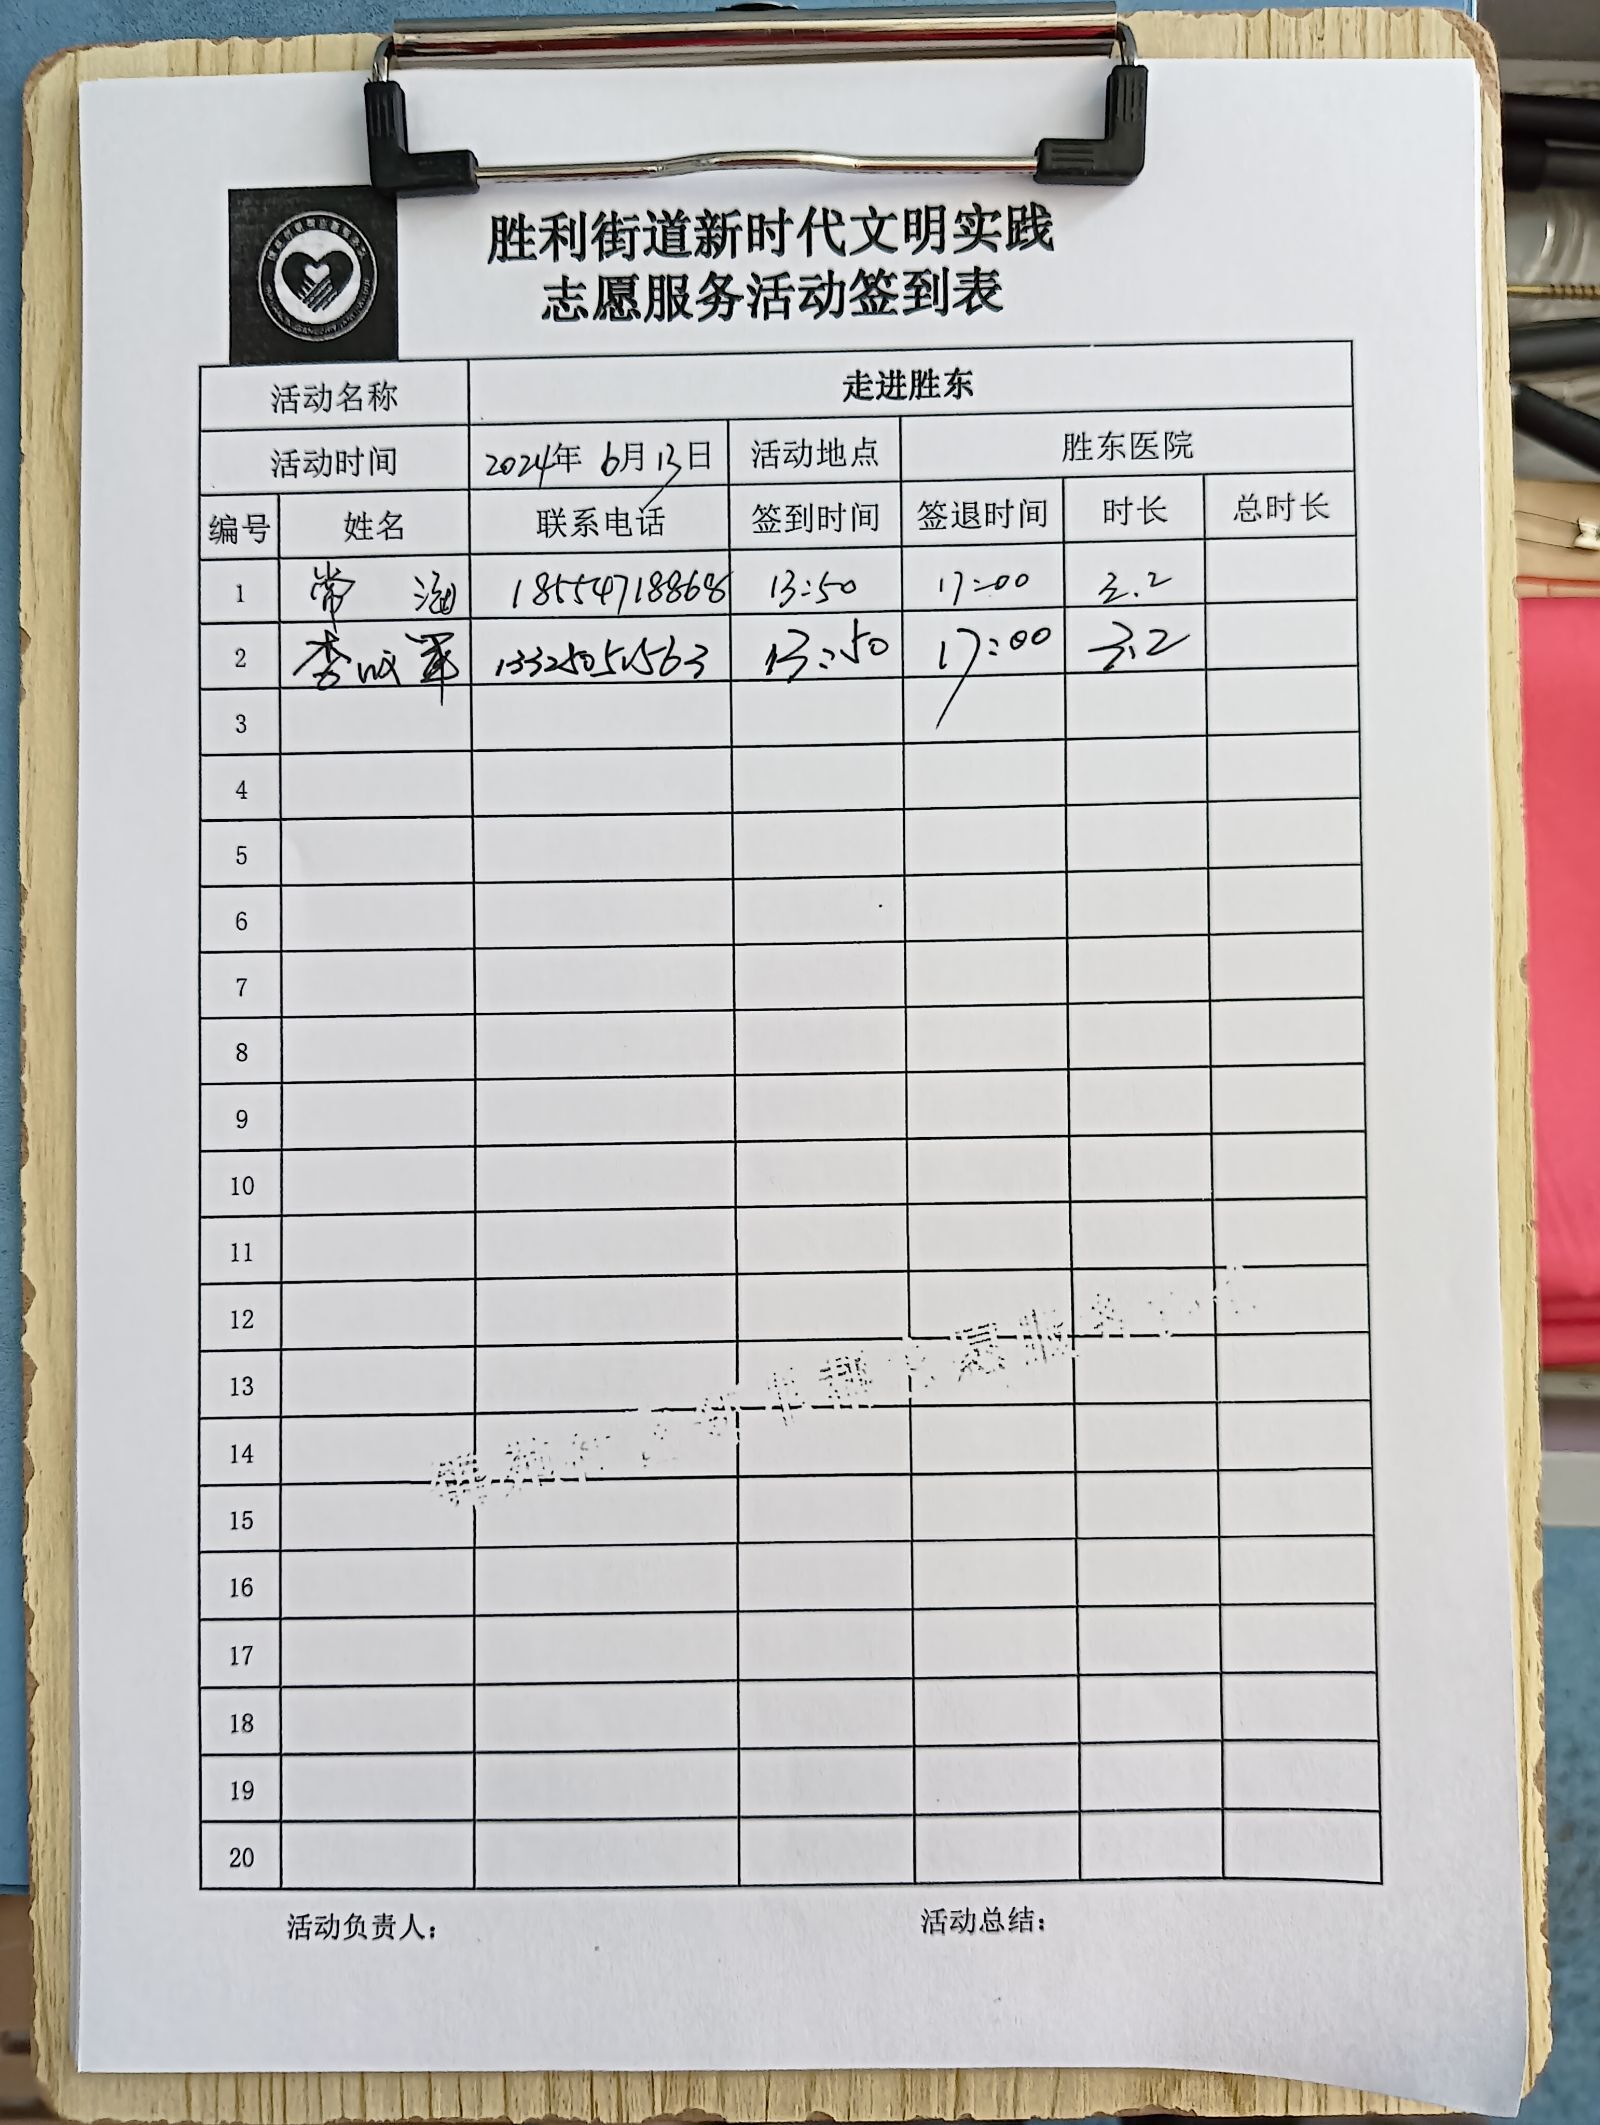 胜利街道新时代文明实践
志愿服务活动签到表
活动名称 走进胜东
活动时间 2024年 6月13日 活动地点 胜东医院
编号 姓名 联系电话 签到时间 签退时间 时长 总时长
1 常 涵 18554718868 13:50 17:00 3.2
2 李成军 13325051563 13:50 17:00 3.2
3
4
5
6
7
8
9
10
11
12
13
14
15
16
17
18
19
20
活动负责人： 活动总结：